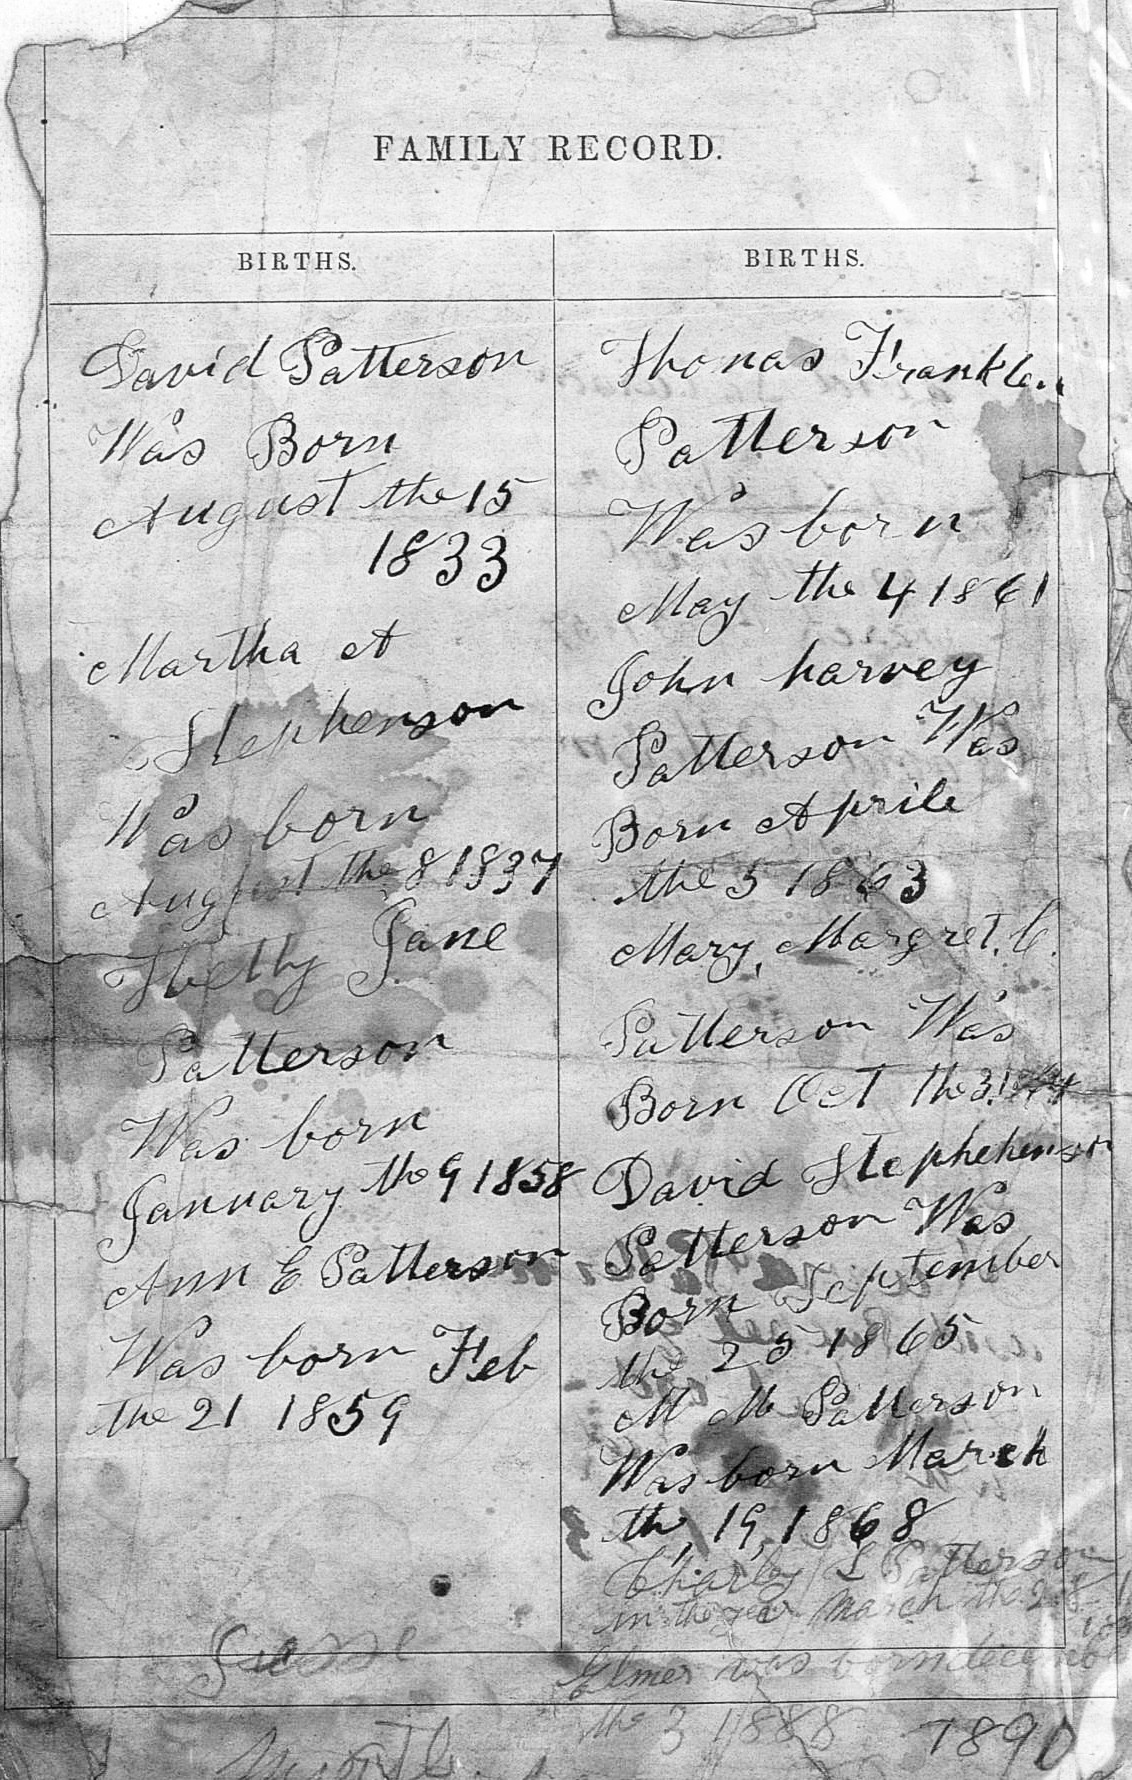 FAMILY RECORD.
BIRTHS.
David Patterson
Was Born
August the 15
1833
Martha A
Stephenson
Was born
August the 8 1837
Hetty Jane
Patterson
Was born
January the 9 1858
Ann E Patterson
Was born Feb
the 21 1859
BIRTHS.
Thonas Franklin
Patterson
Was born
May the 4 1861
John harvey
Patterson Was
Born Aprile
the 5 1863
Mary, Margret. C.
Patterson Was
Born Oct the
David Stephehenson
Patterson Was
Born September
the 25 1865
M M Patterson
Was born March
the 19, 1868
Charley L Patterson
in the year March the 28
Elmer was born
the 3 1888
1890